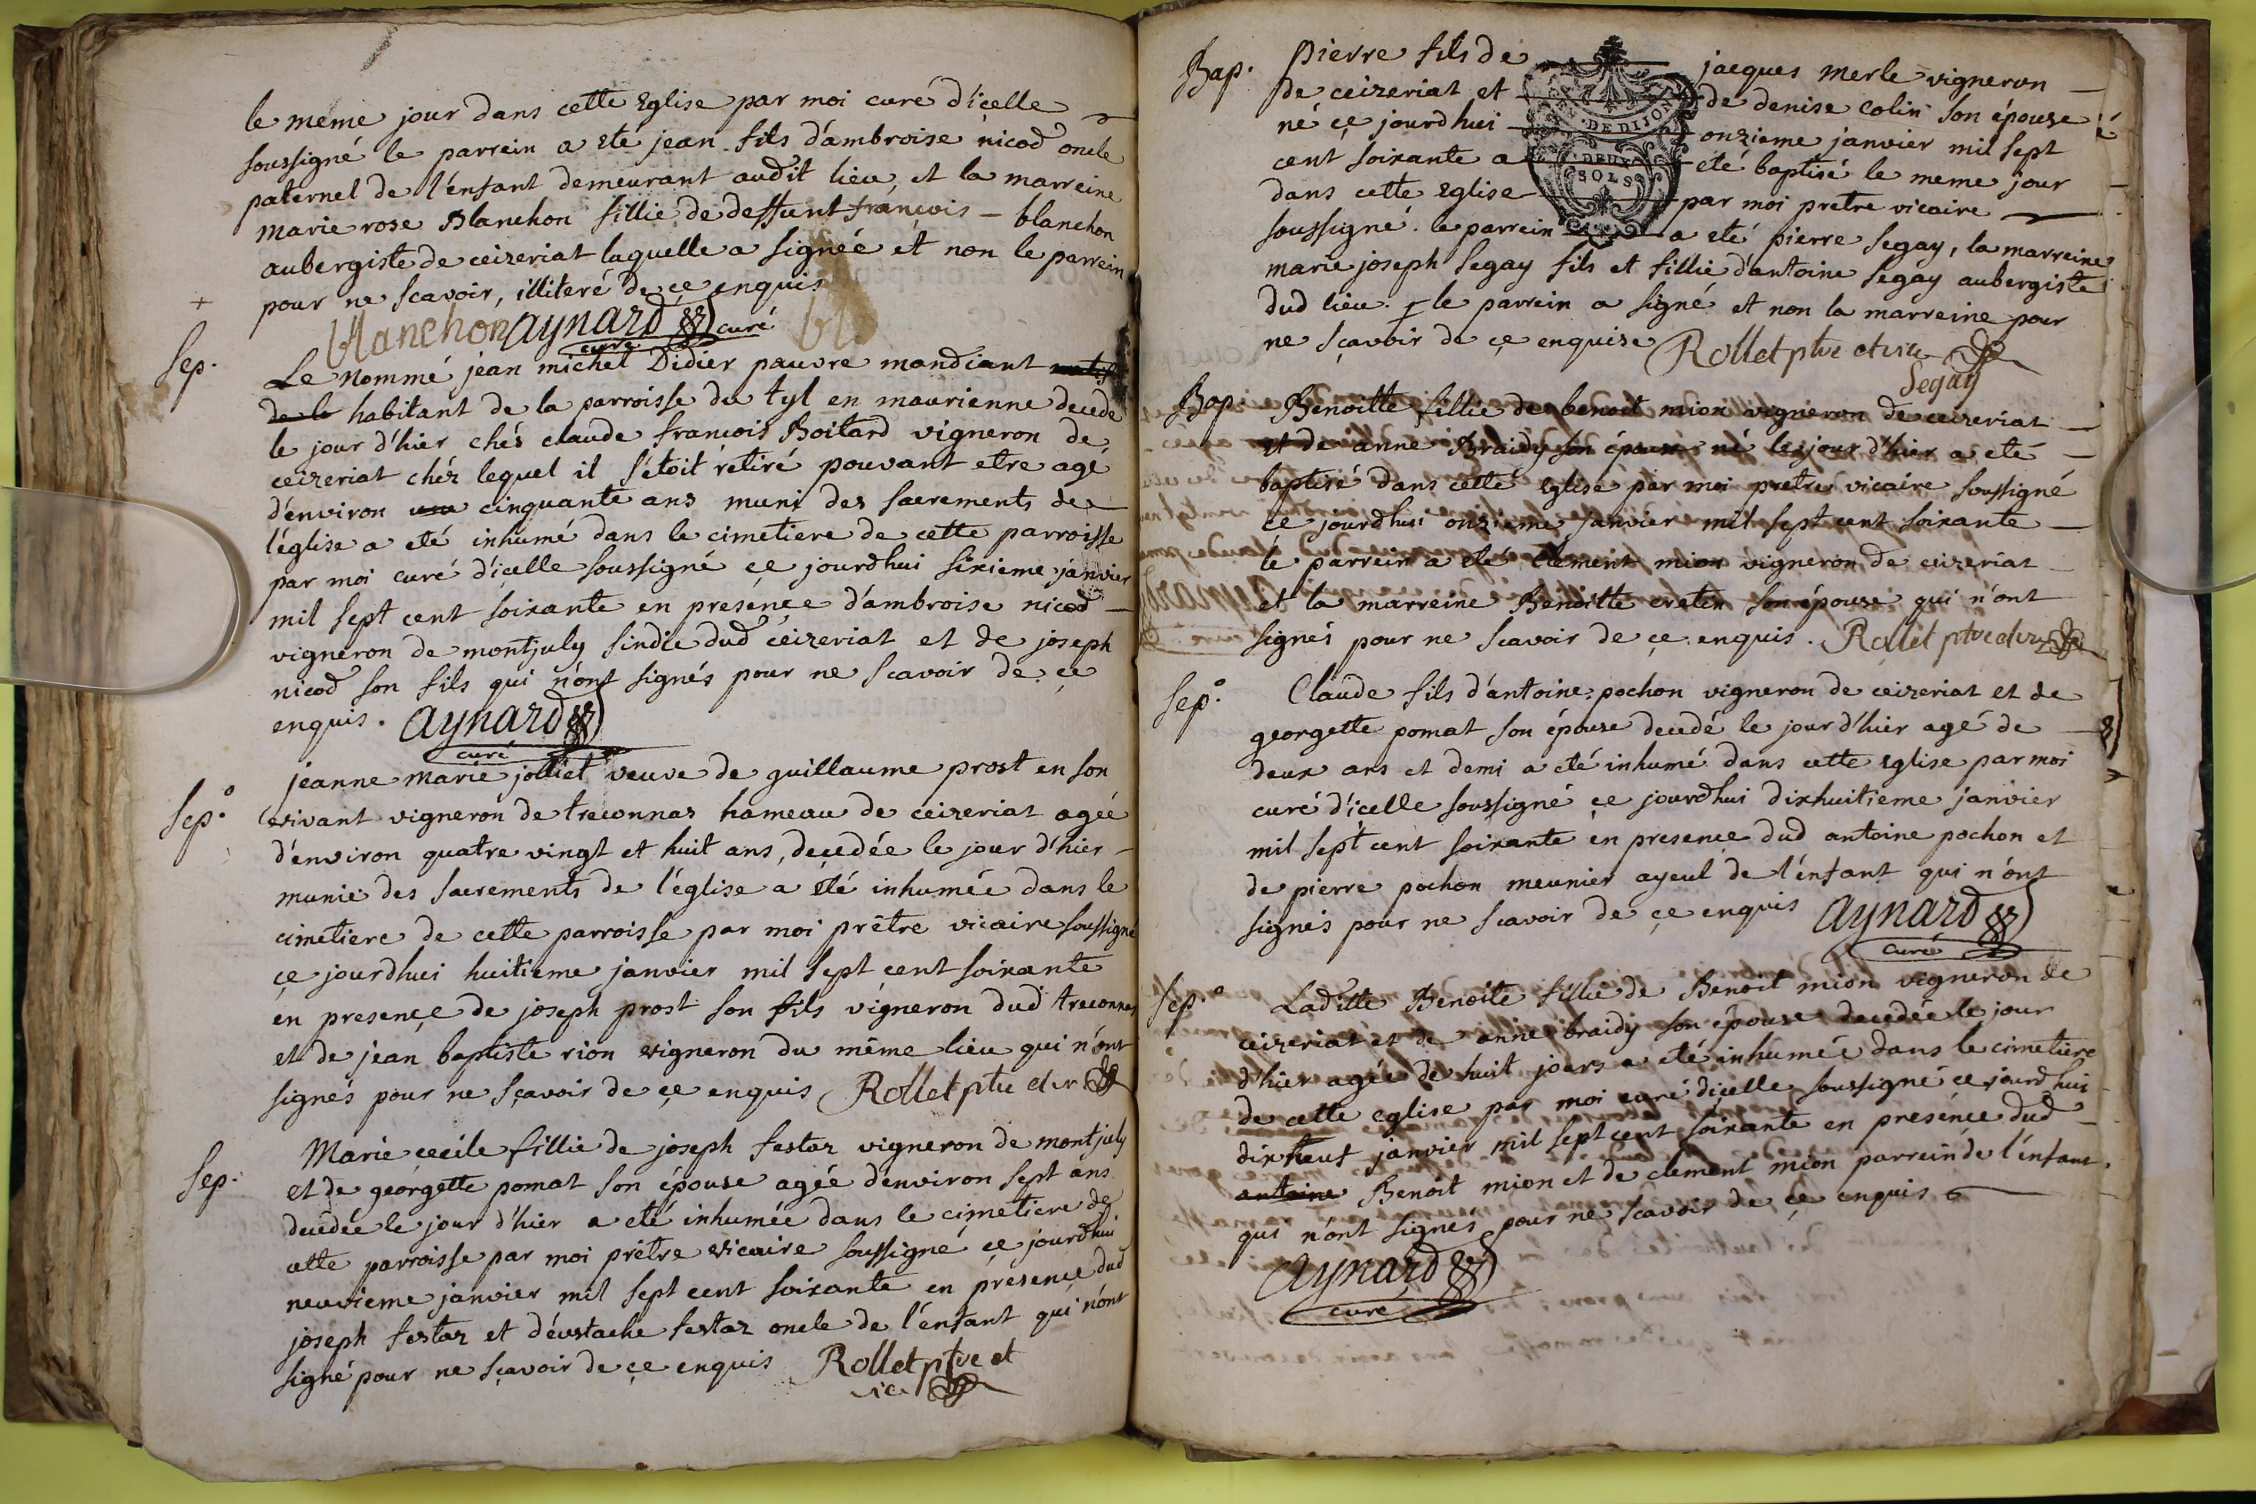 le meme jour dans cette Eglise par moi curé d'icelle
soussigné le parrein a eté jean fils d'ambroise nicod oncle
paternel de l'enfant demeurant audit lieu, et la marreine
marie rose Blanchon fillie de deffunt françois – blanchon
aubergiste de ceizeriat laquelle a signée et non le parrein
pour ne scavoir, illiteré de ce enquis
blanchon aynard curé
curé
Sep.
Le nommé jean michel Didier pauvre mandiant
de la habitant de la parroisse du tyl en maurienne decede
le jour d'hier chés claude françois Boitard vigneron de
ceizeriat chéz lequel il s'étoit retiré pouvant etre agé
d'environ cinquante ans muni des sacrements de
l'église a eté inhumé dans le cimetiere de cette parroisse
par moi curé d'icelle soussigné ce jourdhui sixieme janvier
mil sept cent soixante en presence d'ambroise nicod
vigneron de montjuly sindic dud ceizeriat et de joseph
nicod son fils qui n'ont signés pour ne scavoir de ce
enquis. aynard
curé
Sep.
jeanne marie jolliet veuve de guillaume prost en son
vivant vigneron de treconnas hameau de ceizeriat agée
d'environ quatre vingt et huit ans, decedée le jour d'hier
munie des sacrements de l'église a été inhumée dans le
cimetiere de cette parroisse par moi prêtre vicaire soussigné
ce jourdhui huitieme janvier mil sept cent soixante
en presence de joseph prost son fils vigneron dud treconnas
et de jean baptiste rion vigneron du même lieu qui n'ont
signés pour ne sçavoir de ce enquis Rollet ptre et vic
Sep.
Marie cecile fillie de joseph festaz vigneron de montjuly
et de georgette pomat son épouse agée d'environ sept ans
decedée le jour d'hier a eté inhumée dans le cimetiere de
cette parroisse par moi prêtre vicaire soussigné ce jourdhui
neuvieme janvier mil sept cent soixante en presence dud
joseph festaz et d'eustache festaz oncle de l'enfant qui n'ont
signé pour ne sçavoir de ce enquis Rollet ptre et
vic
GENER. DE DIJON
DEUX
SOLS
Bap.
Pierre fils de jacques merle vigneron
De ceizeriat et de denise colin son épouse
né ce jourdhui onzieme janvier mil sept
cent soixante a eté baptisé le meme jour
dans cette Eglise par moi pretre vicaire
soussigné. le parrein a eté pierre segay, la marreine
marie joseph segay fils et fillie d'antoine segay aubergiste
dud lieu. le parrein a signé et non la marreine pour
ne sçavoir de ce enquise Rollet ptre et vic
Segay
Bap.
Benoitte fillie de benoit mion vigneron de ceizeriat
et de anne Braidy son épouse né le jour d'hier a eté
baptisé dans cette Eglise par moi pretre vicaire soussigné
ce jourdhui onzieme janvier mil sept cent soixante
le parrein a eté clement mion vigneron de ceizeriat
et la marreine Benoitte cretin son épouse qui n'ont
signés pour ne scavoir de ce enquis. Rollet ptre et vic
Sep.
Claude fils d'antoine pochon vigneron de ceizeriat et de
georgette pomat son épouse decedé le jour d'hier agé de
deux ans et demi a eté inhumé dans cette Eglise par moi
curé d'icelle soussigné ce jourdhui dixhuitieme janvier
mil sept cent soixante en presence dud antoine pochon et
de pierre pochon meunier ayeul de l'enfant qui n'ont
signés pour ne scavoir de ce enquis aynard
curé
Sep.
Laditte Benoite fillie de Benoit mion vigneron de
ceizeriat et de anne braidy son épouse decedée le jour
d'hier agée de huit jours a eté inhumée dans le cimetiere
de cette eglise par moi curé d'icelle soussigné ce jourdhui
dixneuf janvier mil sept cent soixante en presence dud
antoine Benoit mion et de clement mion parrein de l'enfant
qui n'ont signés pour ne scavoir de ce enquis
aynard
curé